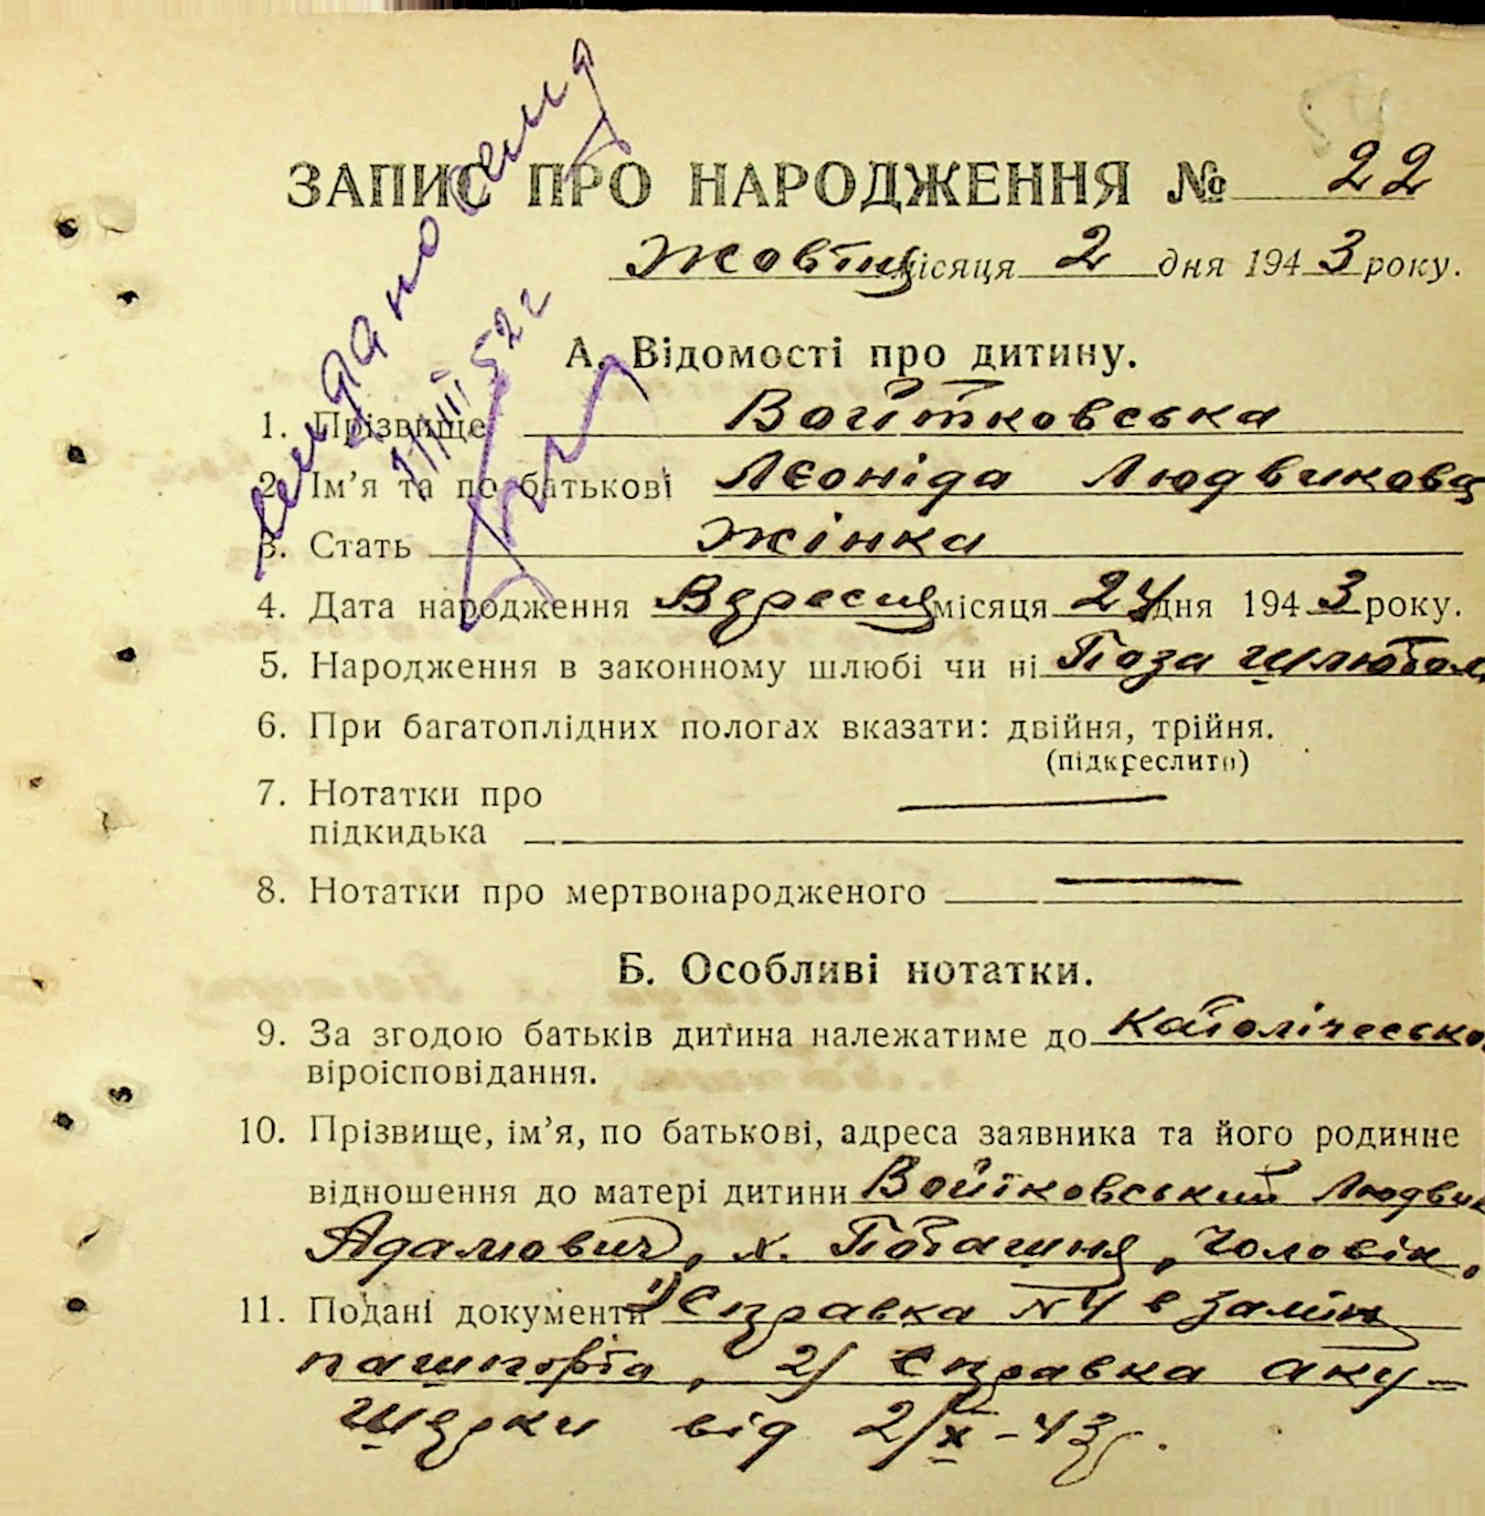 ЗАПИС ПРО НАРОДЖЕННЯ № 22
Жовтня місяця 2 дня 1943 року.
А. Відомості про дитину.
1. Прізвище Войтковська
2. Ім’я та по батькові Леоніда Людвиковa
3. Стать жінка
4. Дата народження Вересня місяця 24 дня 1943 року.
5. Народження в законному шлюбі чи ні Поза шлюбом
6. При багатоплідних пологах вказати: двійня, трійня.
(підкреслити)
7. Нотатки про
підкидька
8. Нотатки про мертвонародженого
Б. Особливі нотатки.
9. За згодою батьків дитина належатиме до католическо
віроісповідання.
10. Прізвище, ім’я, по батькові, адреса заявника та його родинне
відношення до матері дитини Войтковський Людвик
Адамович, х. Поташня, чоловік,
11. Подані документи 1) Справка №4 в замін
пашпорта, 2) Справка аку-
шерки від 2/X-43р.
52 г